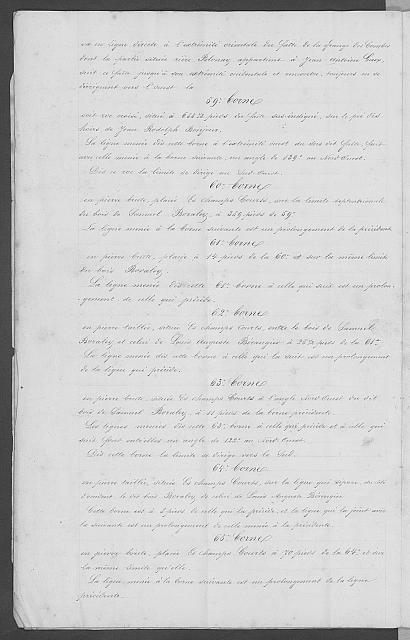 va en ligne directe à l'extrémité orientale du faîte de la grange des Combes
dont la partie située rière appartient à Jean
suit ce faîte jusqu'à son extrémité occidentale et encontre, toujours en se
dirigeant vers l'ouest la
59e Borne
soit roc croisé, situé à pieds du faîte sus-indiqué, sur le pré des
hoirs de Jean Rodolph
La ligne menée dès cette borne à l'extrémité ouest du dit faîte, fait
avec celle menée à la borne suivante, un angle de 139° au Nord Ouest.
Dès ce roc la limite se dirige au Sud Ouest.
60e Borne
en pierre brute, placée Es champs Courts, sur la limite septentrionale
du bois de Samuel à 359 pieds de 59e
La ligne menée à la borne suivante est un prolongement de la précédente.
61e Borne
en pierre brute, placée à 14 pieds de la 60e et sur la même limite
du bois
La ligne menée dès cette 61e borne à celle qui suit est un prolon-
gement de celle qui précède.
62e Borne
en pierre taillée, située Es champs Courts, entre le bois de Samuel
et celui de Louis Auguste à pieds de la 61e
La ligne menée dès cette borne à celle qui la suit est un prolongement
de la ligne qui précède.
63e Borne
en pierre brute, située Es champs Courts à l'angle Nord Ouest du dit
bois de Samuel à 11 pieds de la borne précédente.
Les lignes menées dès cette 63e borne à celle qui précède et à celle qui
suit font entr'elles un angle de 122° au Nord Ouest.
Dès cette borne la limite se dirige vers le Sud.
64e Borne
en pierre taillée, située Es champs Courts, sur la ligne qui sépare, du côté
d'occident, le dit bois de celui de Louis Auguste
Cette borne est à 5 pieds de celle qui la précède, et la ligne qui la joint avec
la suivante est un prolongement de celle menée à la précédente.
65e Borne
en pierre brute, placée Es champs Courts à 70 pieds de la 64e et sur
la même limite qu'elle.
La ligne menée à la borne suivante est un prolongement de la ligne
précédente.